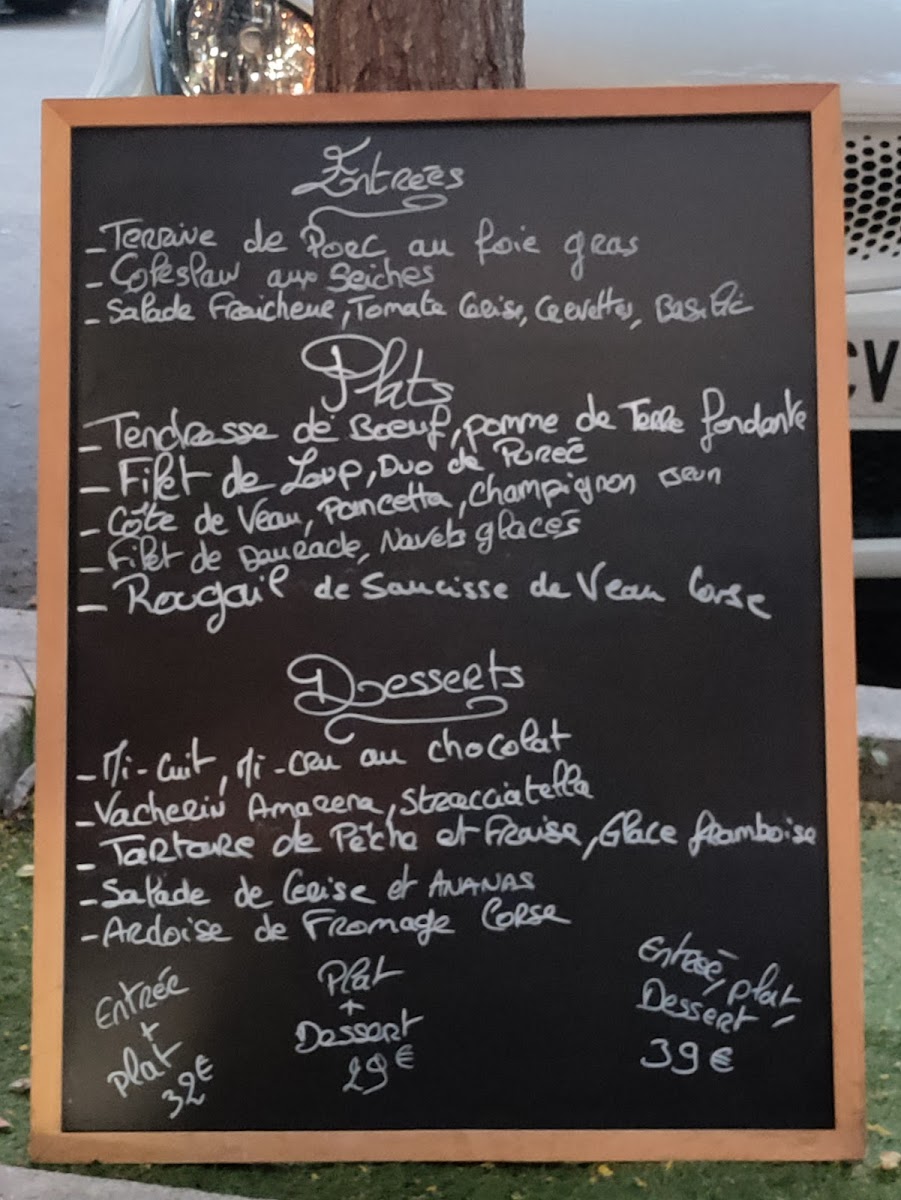 Entrées
- Terrine de Porc au foie gras
- Coleslaw aux Seiches
- Salade Fraicheur, Tomate Cerise, Crevettes, Basilic
Plats
- Tendresse de Bœuf, pomme de Terre fondante
- Filet de Loup, Duo de Pureé
- Côte de Veau, Pancetta, Champignon Brun
- Filet de Daurade, Navets glacés
- Rougail de Saucisse de Veau Corse
Desserts
- Mi-Cuit, Mi-Cru au chocolat
- Vacherin Amarena, Stracciatella
- Tartare de Pêche et Fraise, Glace framboise
- Salade de Cerise et ANANAS
- Ardoise de Fromage Corse
Entrée
+
plat
32€
Plat
+
Dessert
29€
Entreé, plat
Dessert
39€
CV